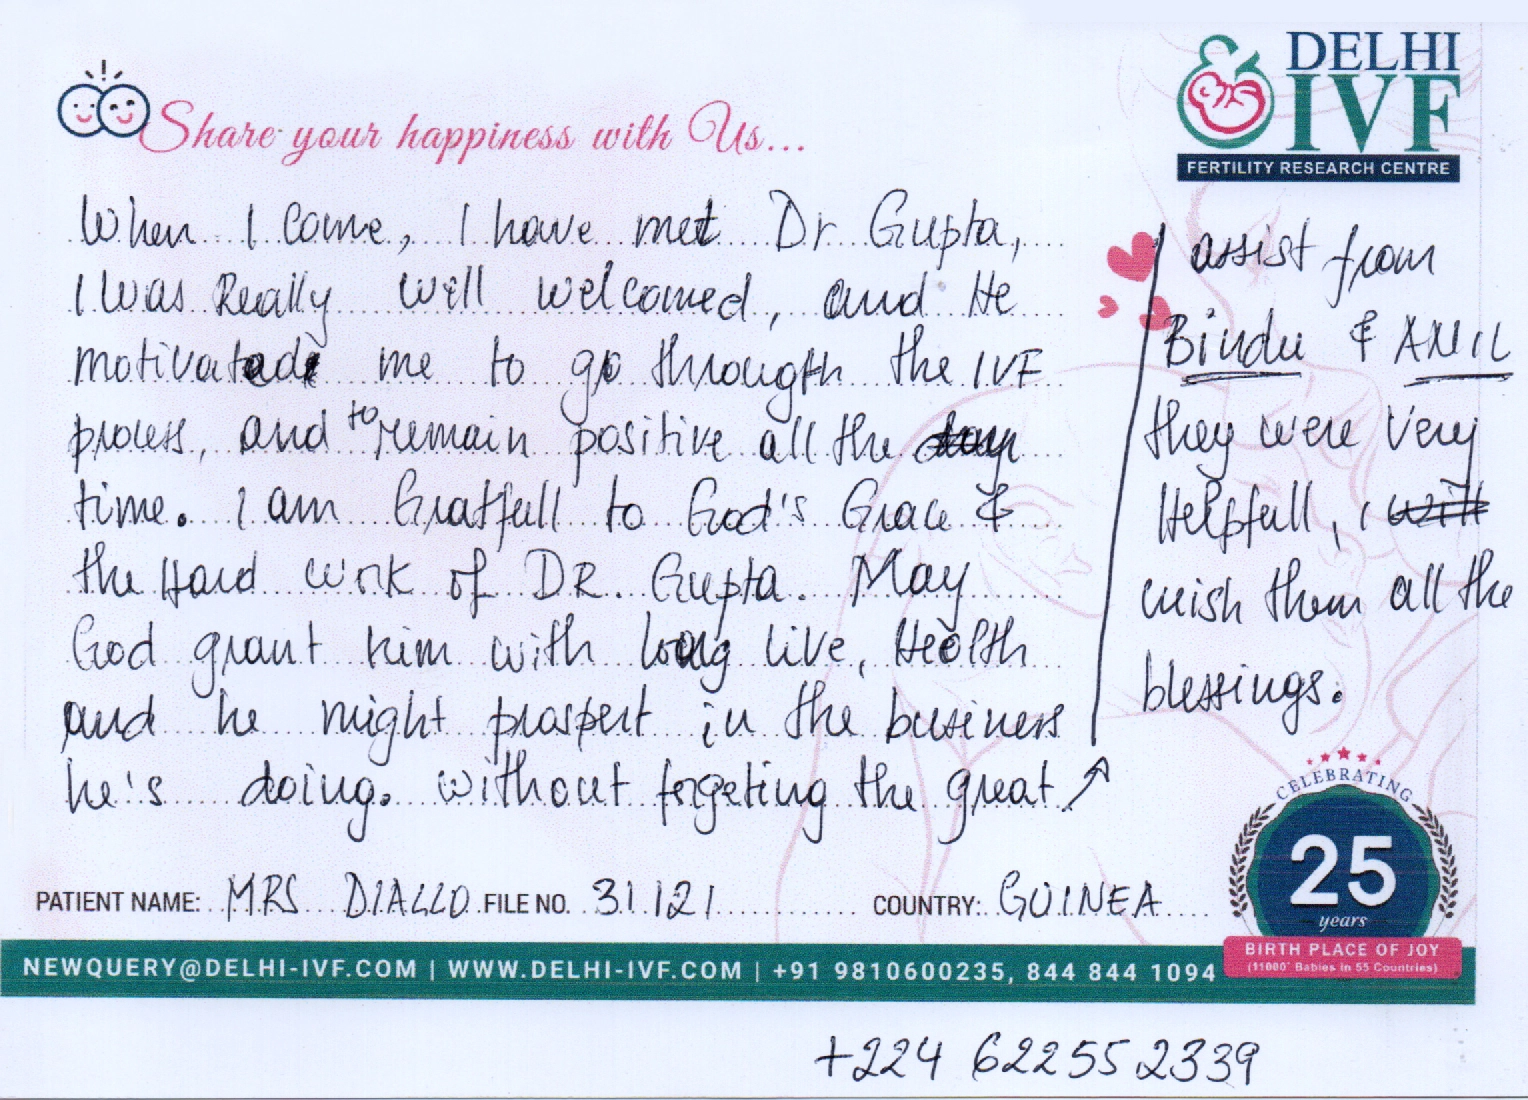 Share your happiness with Us...
DELHI
IVF
FERTILITY RESEARCH CENTRE
When I come, I have met Dr Gupta,
I was Really well welcomed, and He
motivated me to go througth the IVF
process, and to remain positive all the
time. I am Gratfull to God's Grace &
the Hard work of DR. Gupta. May
God grant him with long live, Health
and he might prospert in the business
he's doing. without forgeting the great
assist from
Bindu & ANIL
they were very
Helpfull, i
wish them all the
blessings.
PATIENT NAME: MRS DIALLO FILE NO. 31121 COUNTRY: GUINEA
CELEBRATING
25
years
BIRTH PLACE OF JOY
(11000+ Babies in 55 Countries)
NEWQUERY@DELHI-IVF.COM | WWW.DELHI-IVF.COM | +91 9810600235, 844 844 1094
+224 622552339